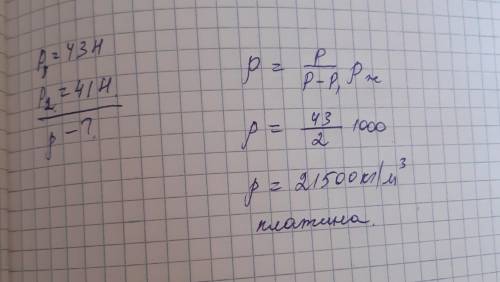 P₁ = 43 Н
P₂ = 41 Н.
ρ - ?
ρ = P / (P - P₁) ρж
ρ = 43 / 2 1000
ρ = 21500 кг/м³
платина.